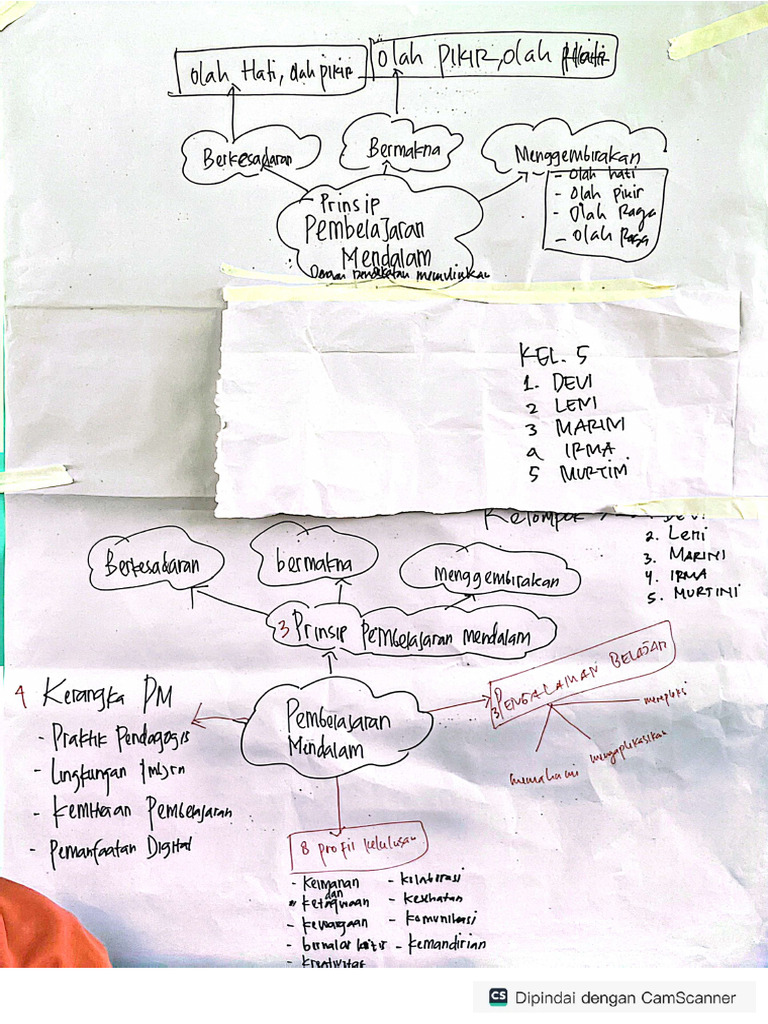 olah Hati, olah pikir
olah PIKIR, olah Hati
Berkesadaran
Bermakna
Menggembirakan
- olah hati
- Olah Pikir
- Olah Raga
- Olah Rasa
Prinsip
Pembelajaran
Mendalam
Dengan pendekatan memuliakan
KEL. 5
1. DEVI
2 LENI
3 MARINI
4 IRMA
5 MURTINI
Kelompok
DEVI
2. Leni
3. MARINI
4. IRMA
5. MURTINI
Berkesadaran
bermakna
Menggembirakan
3 Prinsip Pembelajaran mendalam
4 Kerangka PM
- Praktik Pendagogis
- Lingkungan
- Kemitraan Pembelajaran
- Pemanfaatan Digital
Pembelajaran
Mendalam
3 PENGALAMAN BELAJAR
memahami
mengaplikasikan
8 Profil kelulusan
- Keimanan
dan
ketaqwaan
- kewargaan
- bernalar kritis
- kreativitas
- kolaborasi
- kesehatan
- komunikasi
- kemandirian
CS Dipindai dengan CamScanner